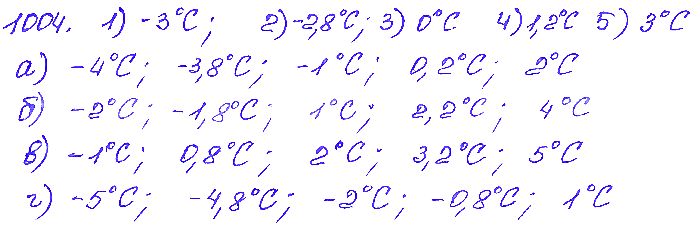 1004. 1) -3°C; 2) -2,8°C; 3) 0°C 4) 1,2°C 5) 3°C
а) -4°C; -3,8°C; -1°C; 0,2°C; 2°C
б) -2°C; -1,8°C; 1°C; 2,2°C; 4°C
в) -1°C; 0,8°C; 2°C; 3,2°C; 5°C
г) -5°C; -4,8°C; -2°C; -0,8°C; 1°C